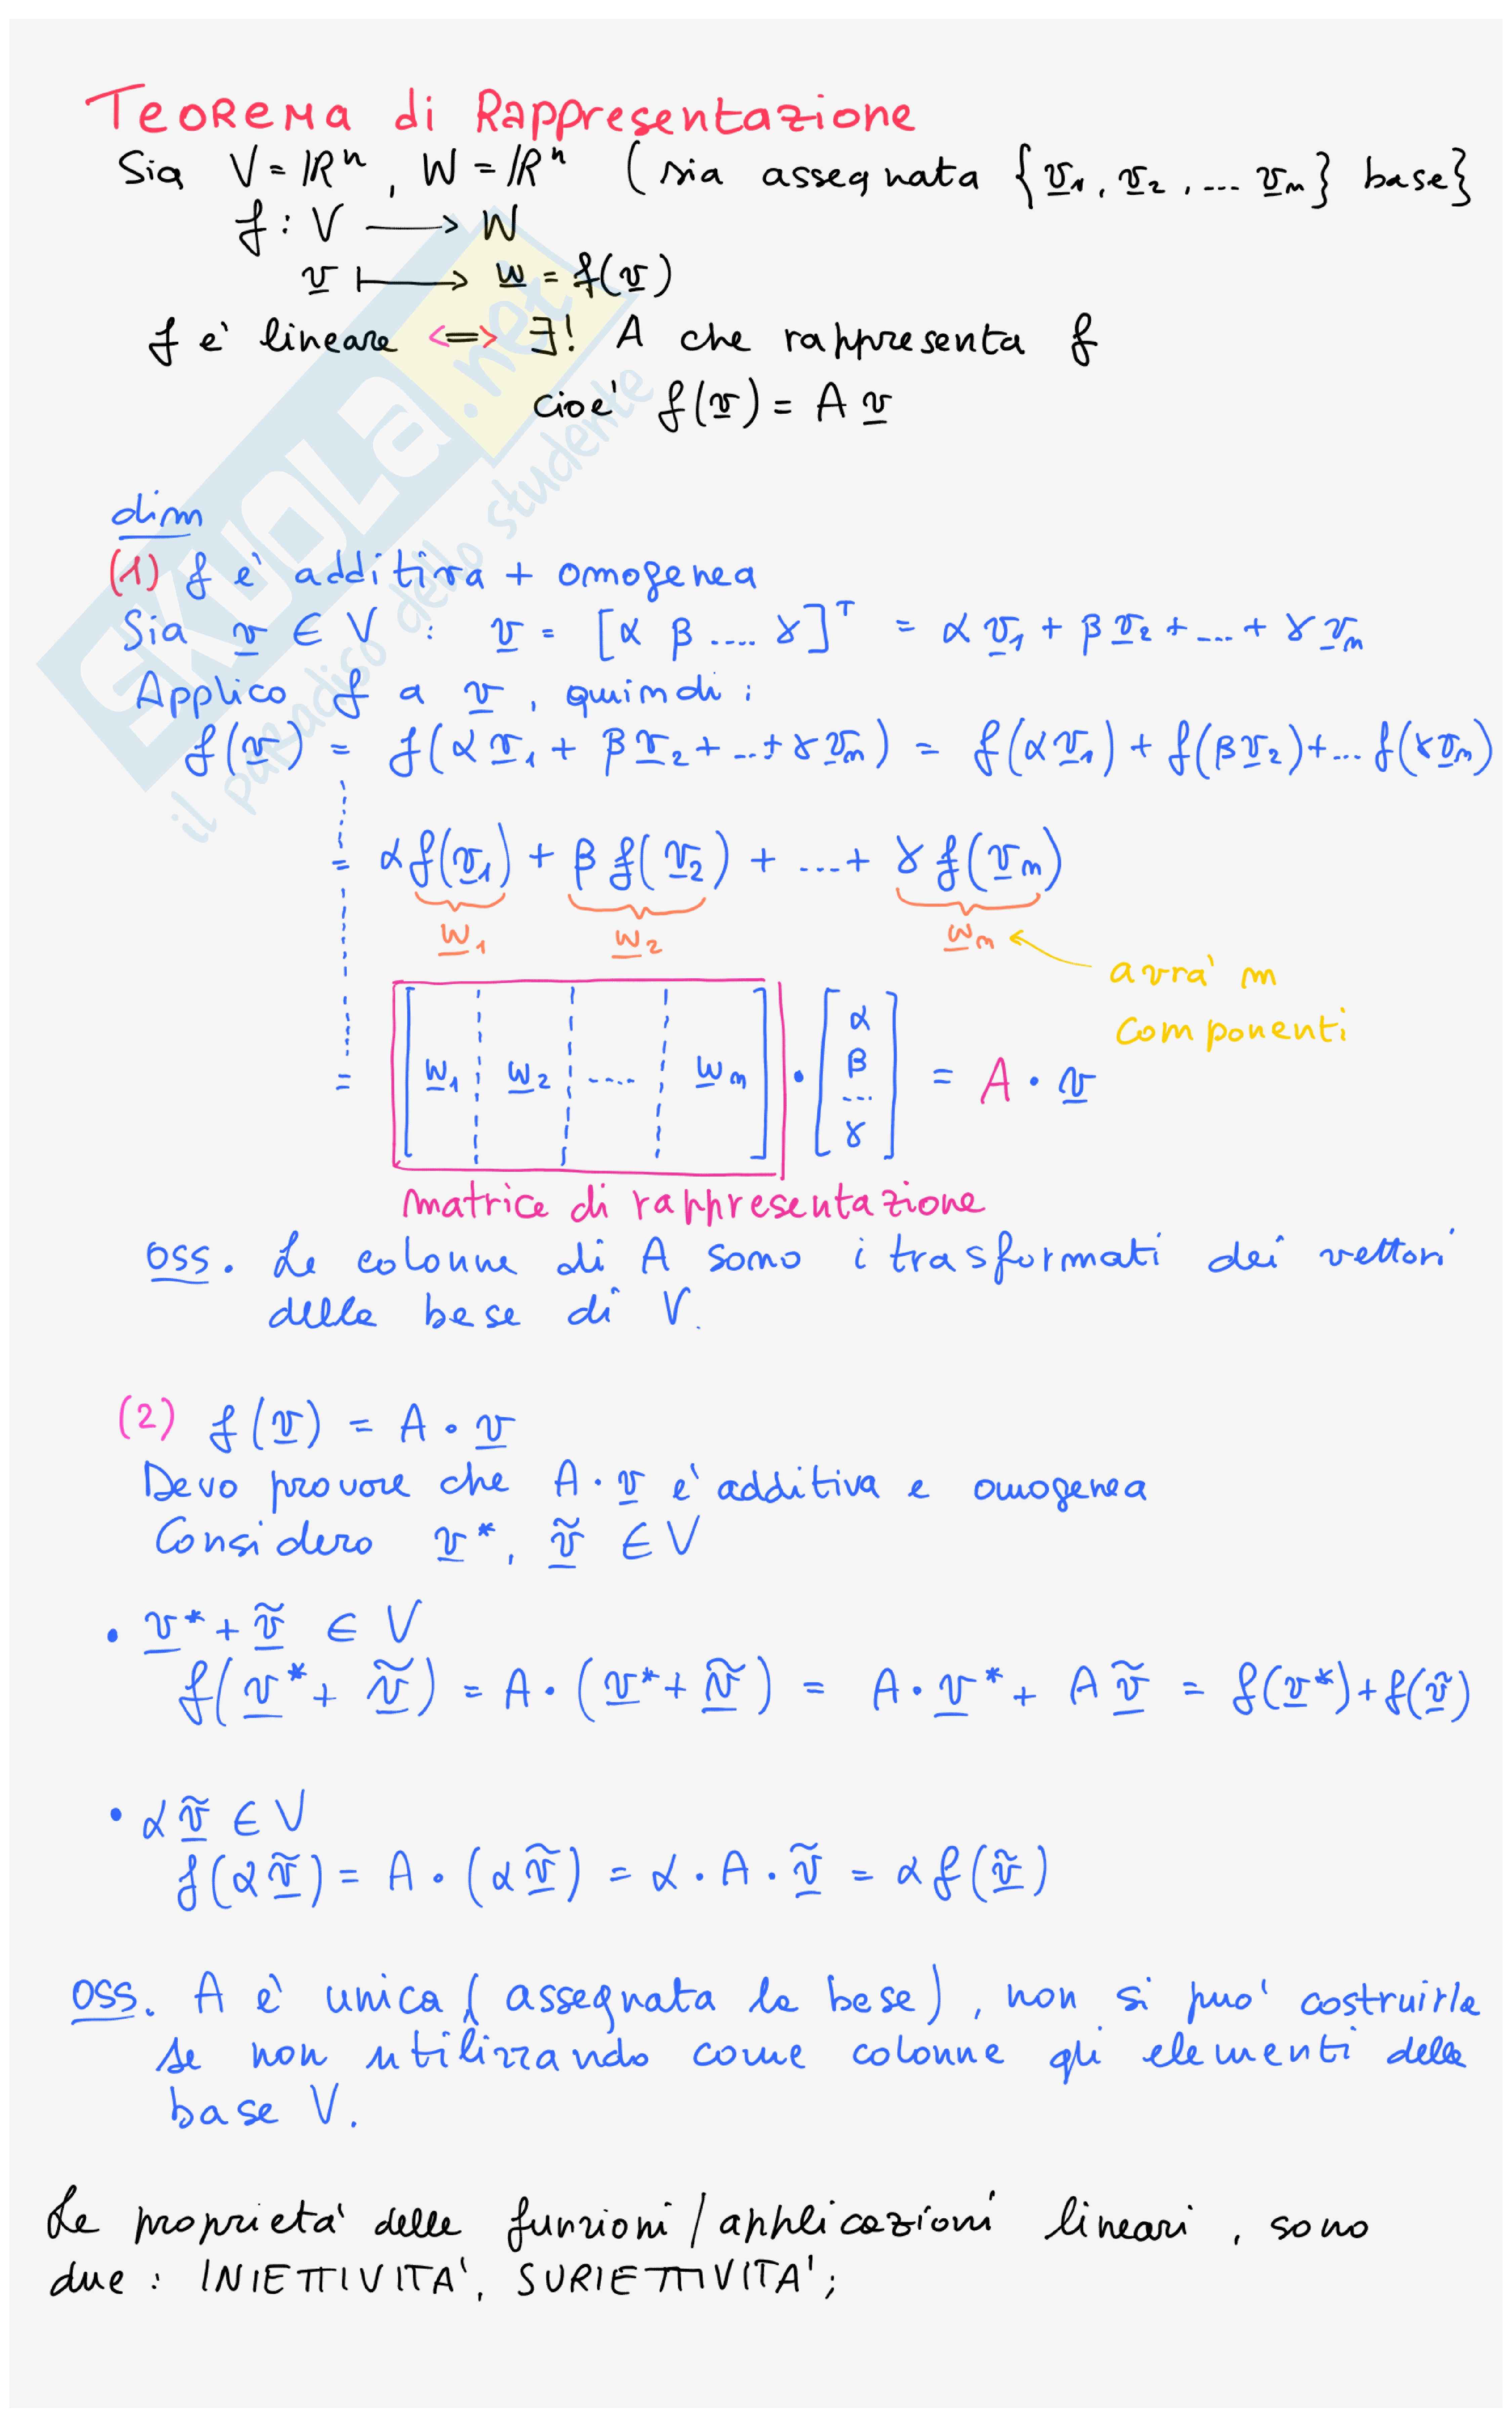 Teorema di Rappresentazione
Sia V = ℝⁿ, W = ℝⁿ (sia assegnata {v̲₁, v̲₂, .... v̲ₙ} base}
f : V ⟶ W
v̲ ⟼ w̲ = f(v̲)
f e' lineare <=> ∃! A che rappresenta f
cioe' f(v̲) = A v̲
dim
(1) f e' additiva + omogenea
Sia v̲ ∈ V : v̲ = [α β .... γ]ᵀ = α v̲₁ + β v̲₂ + ... + γ v̲ₙ
Applico f a v̲, quindi:
f(v̲) = f(α v̲₁ + β v̲₂ + ..+ γ v̲ₙ) = f(α v̲₁) + f(β v̲₂) + ... f(γ v̲ₙ)
= α f(v̲₁) + β f(v̲₂) + ...+ γ f(v̲ₙ)
w̲₁ w̲₂ w̲ₙ ← avra' m
componenti
= [w̲₁ ¦ w̲₂ ¦ .... ¦ w̲ₙ] · [α β ... γ] = A · v̲
matrice di rappresentazione
oss. Le colonne di A sono i trasformati dei vettori
della base di V.
(2) f(v̲) = A · v̲
Devo provare che A · v̲ e' additiva e omogenea
Considero v̲*, ṽ̲ ∈ V
• v̲* + ṽ̲ ∈ V
f(v̲* + ṽ̲) = A · (v̲* + ṽ̲) = A · v̲* + A ṽ̲ = f(v̲*) + f(ṽ̲)
• α ṽ̲ ∈ V
f(α ṽ̲) = A · (α ṽ̲) = α · A · ṽ̲ = α f(ṽ̲)
oss. A e' unica (assegnata la base), non si puo' costruirla
se non utilizzando come colonne gli elementi della
base V.
Le proprieta' delle funzioni/applicazioni lineari, sono
due : INIETTIVITA', SURIETTIVITA';
SKUOLa.net
il paradiso dello studente